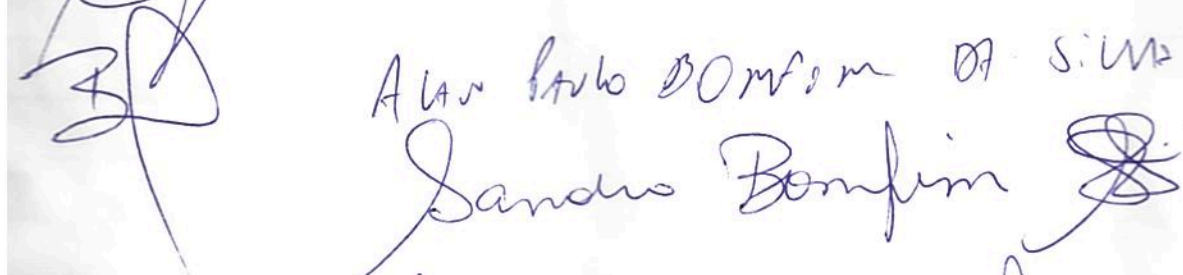 Alan Paulo BOMFIM DA SILVA
Sandro Bomfim